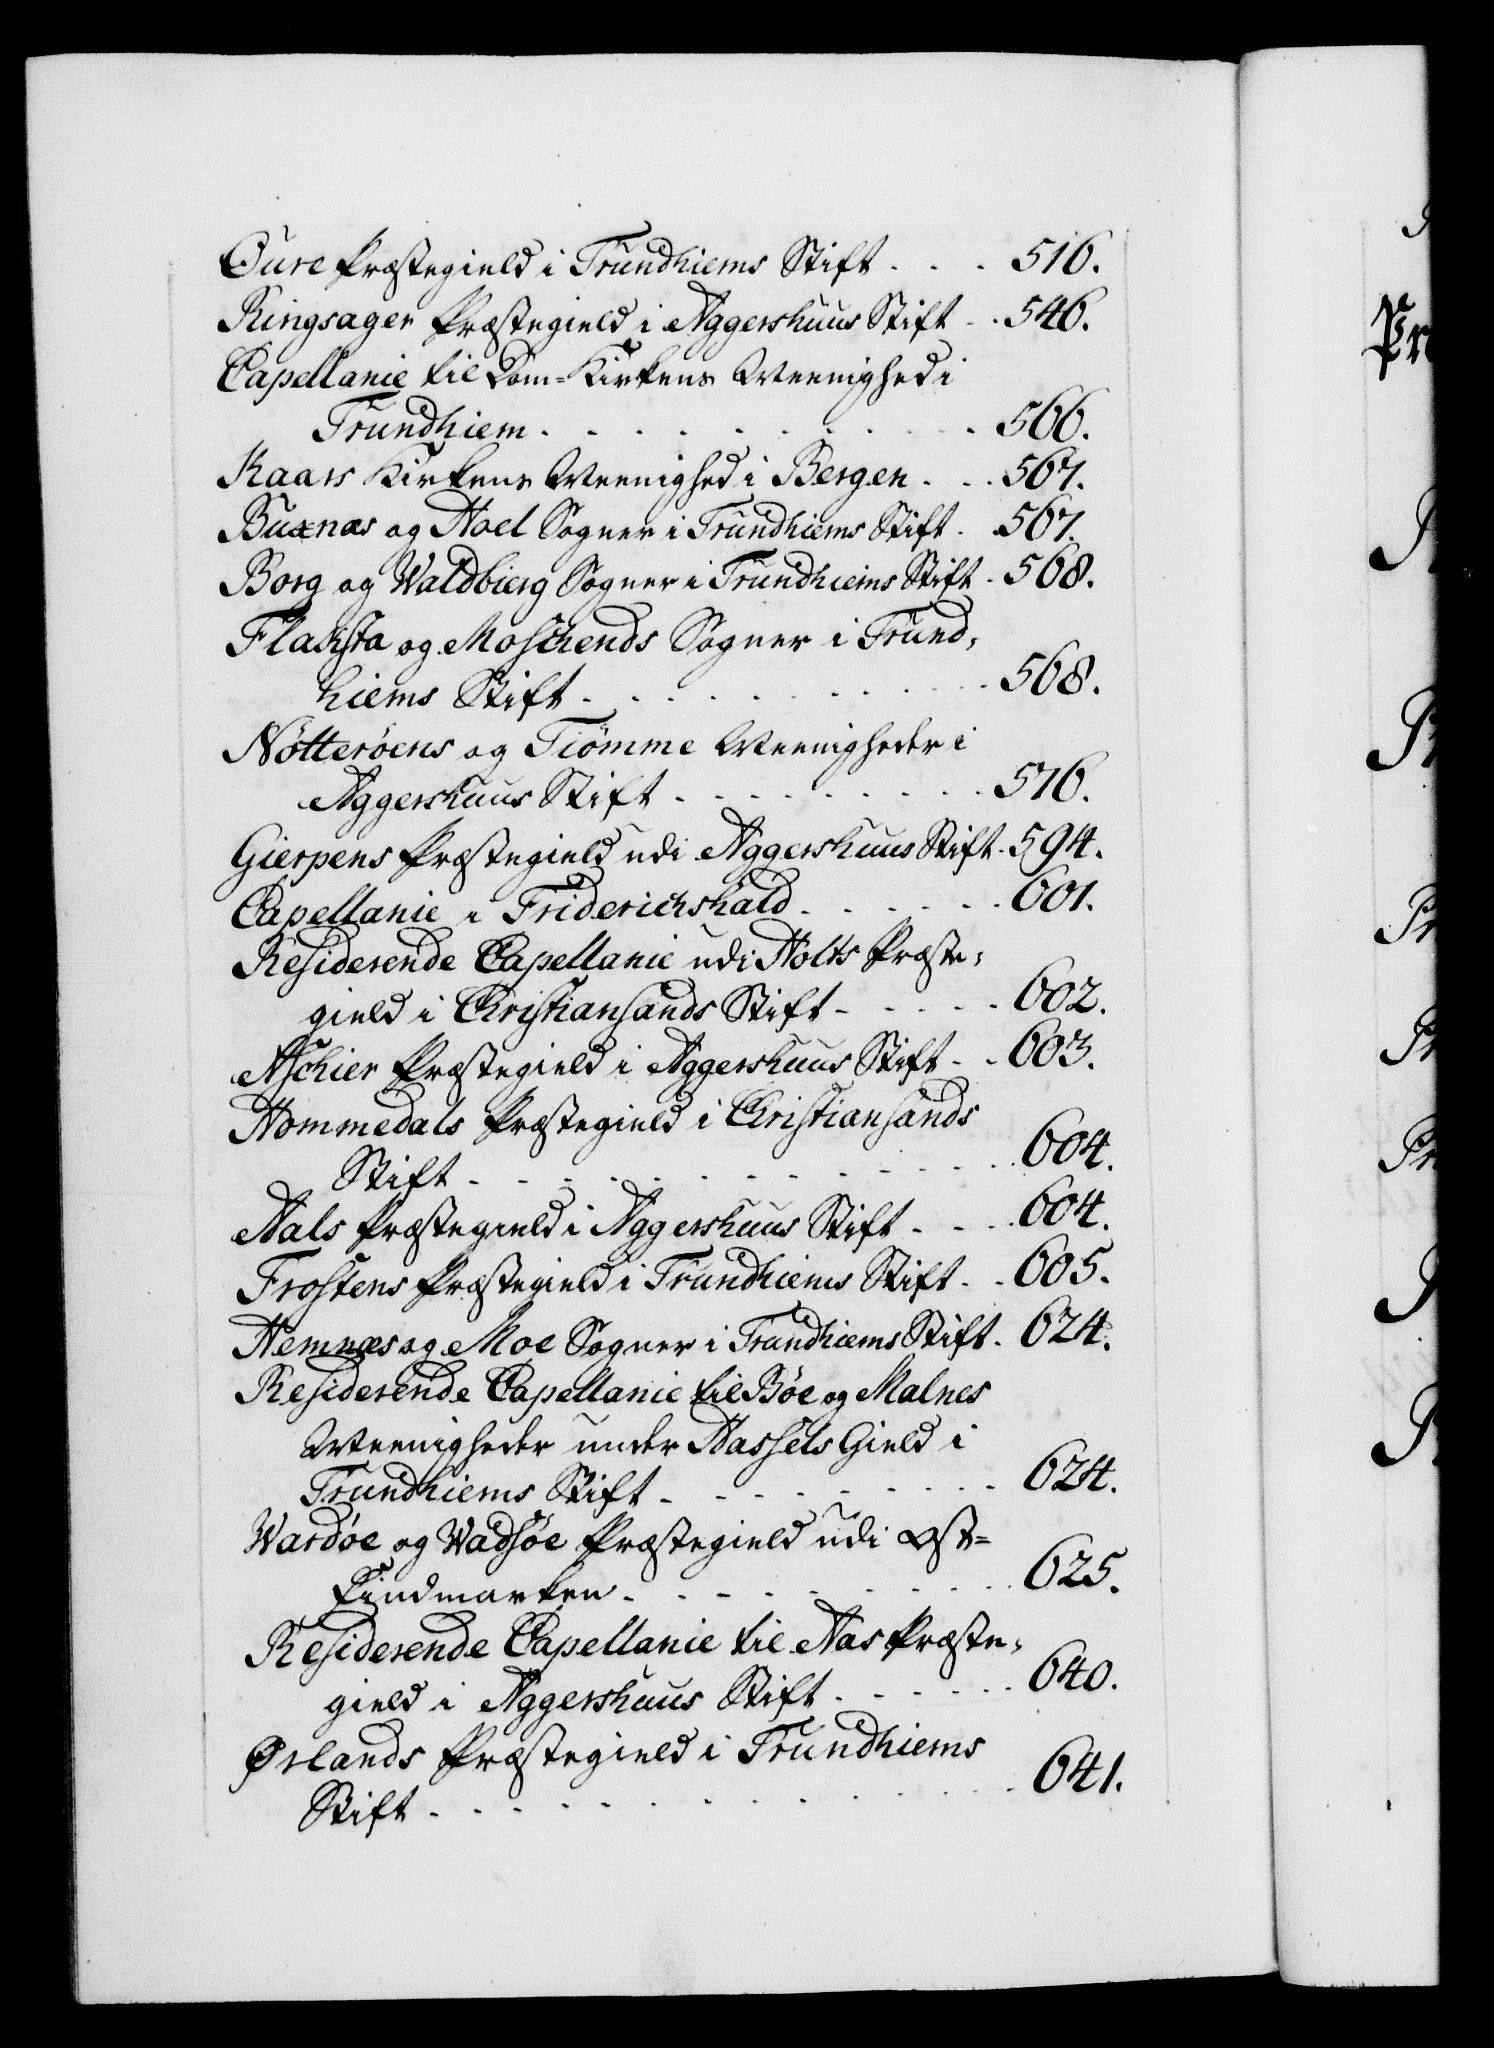 Oure Præstegield i Trundhiems Stift . . . 516.
Ringsager Præstegield i Aggershuus Stift . . 546.
Capellanie til Dom-Kirkens Meenighed i
Trundhiem . . . . . . . . . 566.
Kaars Kirkens Meenighed i Bergen . . . 567.
Buxnæs og Hoel Sogner i Trundhiems Stift . 567.
Borg og Waldbierg Sogner i Trundhiems Stift . 568.
Flaksta og Moschends Sogner i Trund-
hiems Stift . . . . . . . . 568.
Nötteröens og Tiömme Meenigheder i
Aggershuus Stift . . . . . . . 576.
Gierpens Præstegield udi Aggershuus Stift . 594.
Capellanie i Friderichshald . . . . . 601.
Residerende Capellanie udi Holts Præste-
gield i Christiansands Stift . . . . . 602.
Aschier Præstegield i Aggershuus Stift . . 603.
Hommedals Præstegield i Christiansands
Stift . . . . . . . . . . 604.
Aals Præstegield i Aggershuus Stift . . . 604.
Frostens Præstegield i Trundhiems Stift . . 605.
Hemnæs og Moe Sogner i Trundhiems Stift . 624.
Residerende Capellanie til Bøe og Malnes
Meenigheder under Hassels Gield i
Trundhiems Stift . . . . . . . 624.
Wardøe og Wadsøe Præstegield udi Ost-
Findmarken . . . . . . . . 625.
Residerende Capellanie til Aas Præste-
gield i Aggershuus Stift . . . . . 640.
Ørlands Præstegield i Trundhiems
Stift . . . . . . . . . . 641.